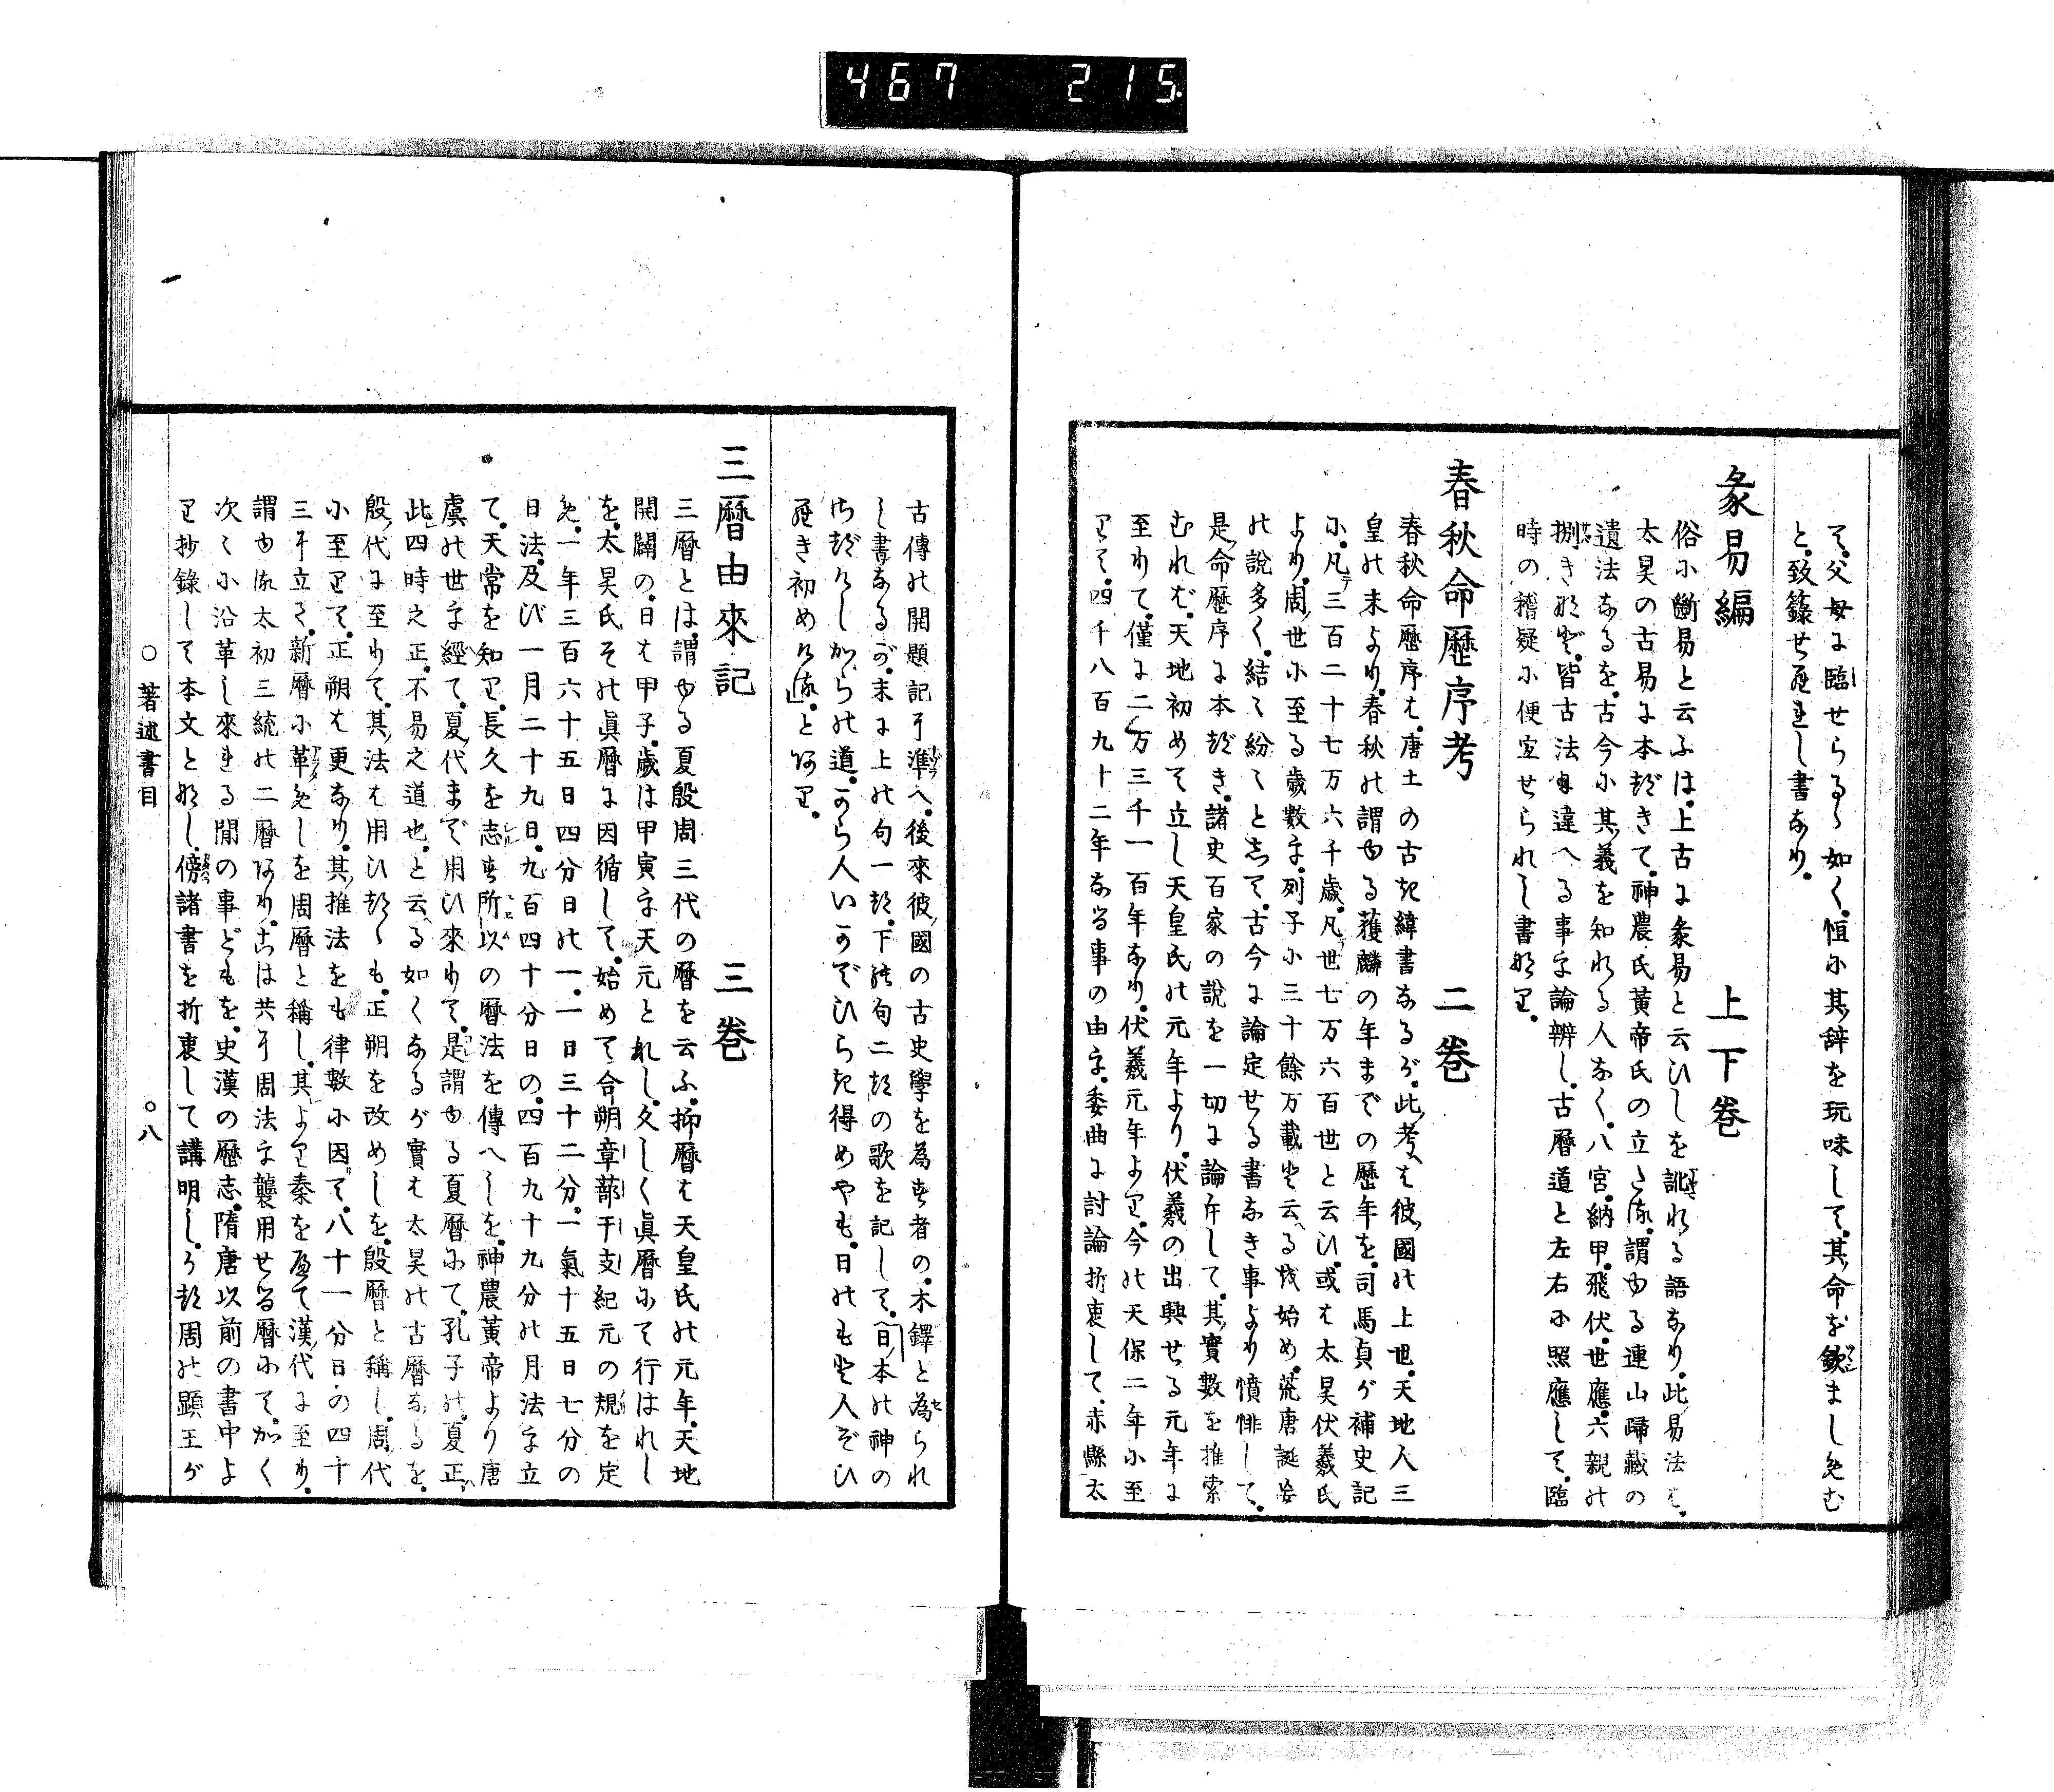 467 215.
て。父母に臨せらるゝ如く。恒に其辞を玩味して。其命を欽ましめむ
と。致籙せられし書なり。
彖易編 上下巻
俗に斷易と云ふは。上古に彖易と云ひしを訛れる語なり。此易法は。
太昊の古易に本づきて。神農氏黃帝氏の立たる。謂ゆる連山歸藏の
遺法なるを。古今に其義を知れる人なく。八宮。納甲。飛伏。世應。六親の
捌きなど。皆古法に違へる事を論辨し。古曆道と左右に照應して。臨
時の稽疑に便宜せられし書なり。
春秋命歷序考 二巻
春秋命歷序は。唐土の古き緯書なるが。此考は彼國の上世。天地人三
皇の末より。春秋の謂ゆる獲麟の年までの歷年を。司馬貞が補史記
に。凡三百二十七万六千歲。凡世七万六百世と云ひ。或は太昊伏羲氏
より。周世に至る歲數を。列子に三十餘万載と云へるを始め。荒唐誕妄
の說多く。結て紛々として。古今に論定せる書なき事より憤悱して。
是命歷序に本づき。諸史百家の說を一切に論斥して。其實數を推索
むれば。天地初めて立し天皇氏の元年より。伏羲の出興せる元年に
至りて。僅に二万三千一百年なり。伏羲元年より。今の天保二年に至
りて。四千八百九十二年なる事の由を。委曲に討論折衷して。赤縣太
古傳の開題記に準へ。後來彼國の古史學を為む者の。木鐸と為られ
し書なるが。末に上の句一つ。下の句二つの歌を記して。日本の神の
みづけしからの道。から人いかでひらき得めやも。日のもと人ぞひ
らき初めける。とあり。
三曆由來記 三巻
三曆とは。謂ゆる夏殷周三代の曆を云ふ。抑曆は天皇氏の元年。天地
開闢の。日は甲子。歲は甲寅を天元とれし。久しく眞曆にて行はれし
を。太昊氏その眞曆に因循して。始めて合朔章蔀干支紀元の規を定
め。一年三百六十五日四分日の一。一日三十二分。一氣十五日七分の
日法。及び一月二十九日。九百四十分日の。四百九十九分の月法を立
て。天常を知り。長久を志す所以の曆法を傳へしを。神農黃帝より唐
虞の世を經て。夏代まで用ひ來りて。是謂ゆる夏曆にて。孔子の。夏正
此四時之正。不易之道也。と云へる如くなるが實は太昊の古曆なるを。
殷代に至りて。其法は用ひつゝも。正朔を改めしを。殷曆と稱し。周代
に至りて。正朔は更なり。其推法をも律數に因て。八十一分日の四十
三に立て。新曆に革めしを周曆と稱し。其より秦を歷て漢代に至り。
謂ゆる太初三統の二曆あり。こは共に周法を襲用せる曆にて。かく
次々に沿革し來れる間の事どもを。史漢の歷志。隋唐以前の書中よ
り抄錄して本文となし。傍諸書を折衷して講明し。かつ周の顯王が
○著述書目 ○八